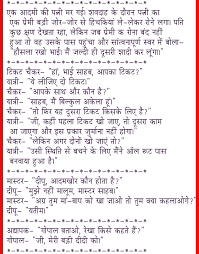 *-*-*-*-*-*-*-*-*-*-*-*-*-*-*
एक आदमी की पत्नी मर गई। शवदाह के दौरान पत्नी का
एक प्रेमी बड़ी जोर-जोर से हिचकियां ले-लेकर रोने लगा। पति
कुछ क्षण देखता रहा, लेकिन जब प्रेमी का रोना बंद नहीं
हुआ तो वह उसके पास पहुंचा और सांत्वनापूर्ण स्वर में बोला-
"हौसला रखो भाई! मैं जल्दी ही दूसरी शादी कर लूंगा।"
*-*-*-*-*-*-*-*-*-*-*-*-*-*-*
टिकट चैकर- "हां, भाई साहब, आपका टिकट?
यात्री- "ये लीजिए दो टिकट।"
चैकर- "आपके साथ और कौन है?"
यात्री- "साहब, मैं बिल्कुल अकेला हूं।"
चैकर- "तो फिर यह दूसरा टिकट किसके लिए है?"
यात्री- "जी, कहीं पहला टिकट खो जाए, तो दूसरा काम
आ जाएगा और इस प्रकार जुर्माना नहीं होगा।"
चैकर- "लेकिन अगर दोनों खो जाएं तो?"
यात्री- "उसी स्थिति से बचने के लिए मैंने ऑल रूट पास
बनवाया हुआ है।"
*-*-*-*-*-*-*-*-*-*-*-*-*-*-*
मास्टर- "दीपू, आदमखोर कौन होता है?"
दीपू- "मुझे नहीं मालूम, मास्टर साहब।"
मास्टर- "अगर तुम मां-बाप को खा जाओ तो तुम क्या कहलाओगे?"
दीपू- "यतीम।"
*-*-*-*-*-*-*-*-*-*-*-*-*-*-*
अध्यापक- "गोपाल बताओ, रेखा किसे कहते हैं?"
गोपाल- "जी, मेरी बड़ी दीदी को।"
*-*-*-*-*-*-*-*-*-*-*-*-*-*-*